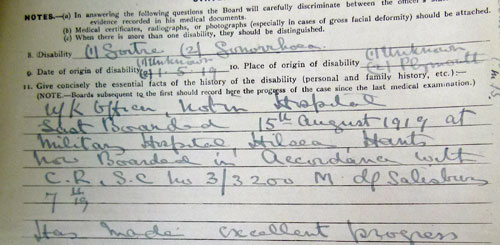 NOTES.—(a) In answering the following questions the Board will carefully discriminate between the officer's
evidence recorded in his medical documents.
(b) Medical certificates, radiographs, or photographs (especially in cases of gross facial deformity) should be attached.
(c) When there is more than one disability, they should be distinguished.
8. Disability (1) Goitre (2) Gonorrhoea
9. Date of origin of disability (1) Unknown (2) 1-5-19 10. Place of origin of disability (1) Unknown (2) Plymouth
11. Give concisely the essential facts of the history of the disability (personal and family history, etc.):—
(NOTE.—Boards subsequent to the first should record here the progress of the case since the last medical examination.)
Officer, Hospital
Last Boarded 15th August 1919 at
Military Hospital, Hilsea Hants
now Boarded in Accordance with
C.R., S.C no 3/3200 M. of Salisbury
7 19
Has made excellent progress